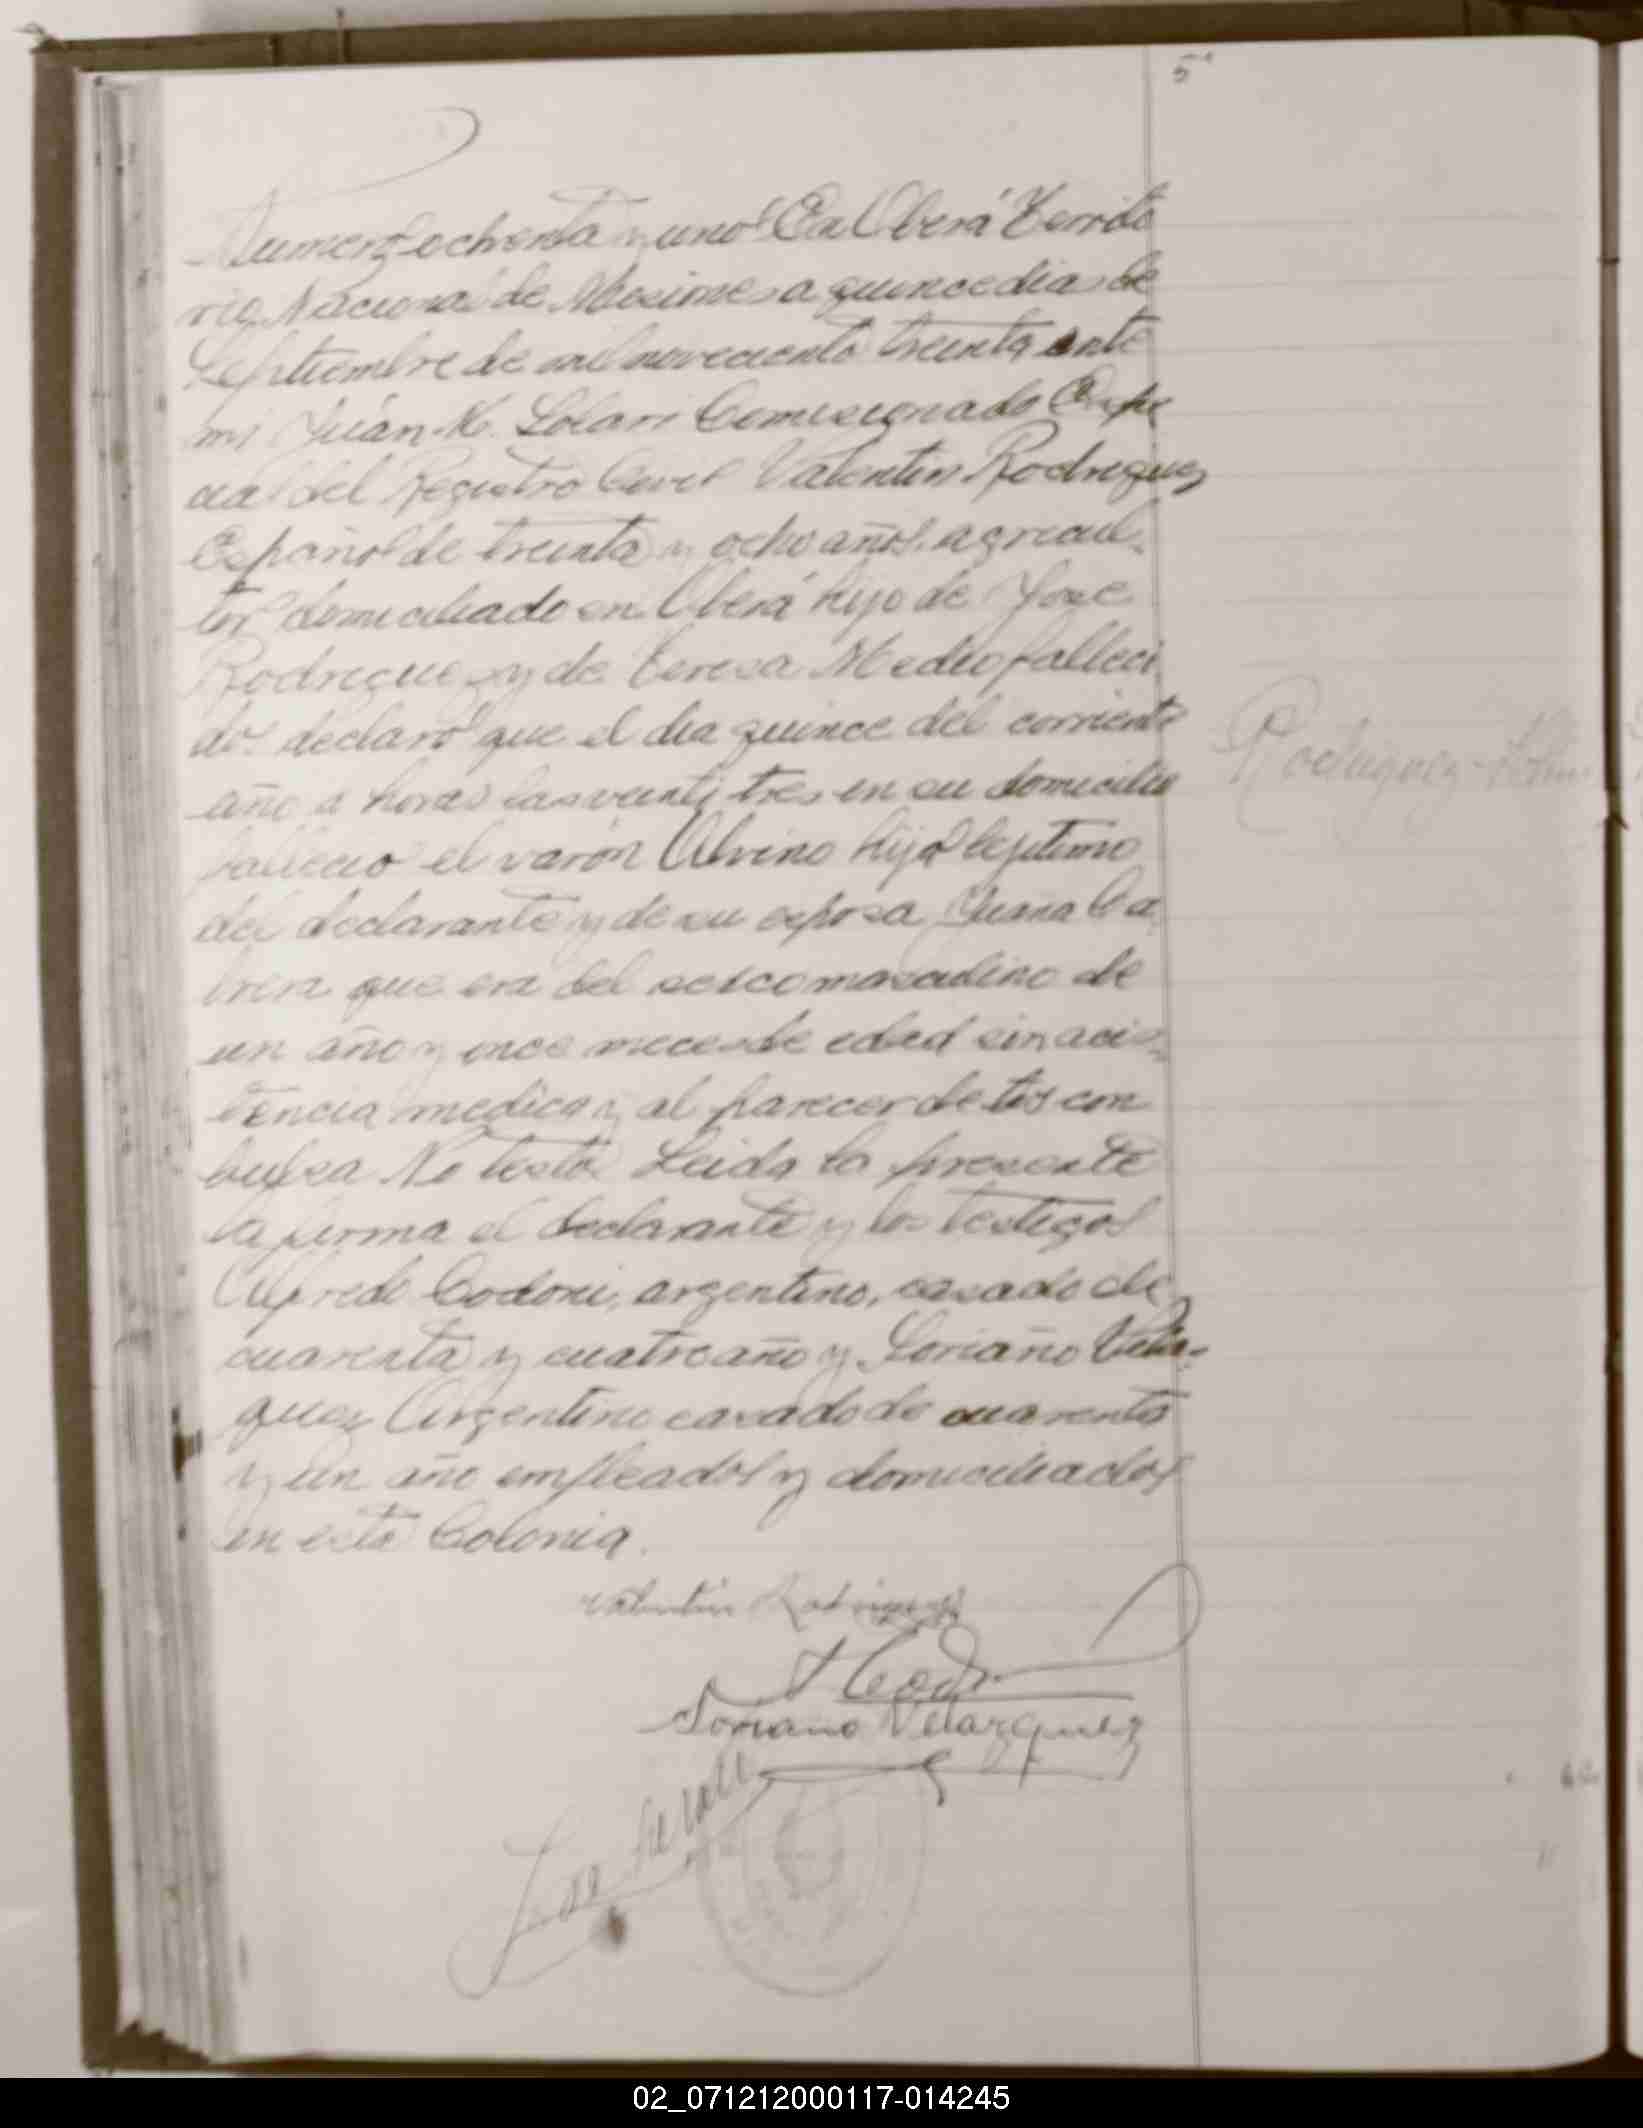 5
Numero ochenta y uno En Oberá Territo
rio Nacional de Misiones a quince dias de
Septiembre de mil noveciento treinta ante
mi Juán M. Solari Comisionado Espe
cial del Registro Civil Valentin Rodriguez
Español de treinta y ocho años, agricul
tor domiciliado en Oberá hijo de Jose
Rodriguez y de Teresa falleci
dos declaró que el dia quince del corriente
año a horas las veinti tres en su domicilio
fallecio el varón Alvino hijo lejitimo
del declarante y de su esposa Juana Ca
brera que era del sexco masculino de
un año y once meces de edad sin acis
tencia medica y al parecer de tos con
bulsa No testó Leida la presente
la firma el declarante y los testigos
Alfredo Codoni, argentino, casado de
cuarenta y cuatro año y Soriaño Velas-
quez Argentino casado de cuarenta
y un año empleados y domiciliados
en esta Colonia.
Rodriguez-
Valentin Rodriguez
Soriano Velazquez
02_071212000117-014245